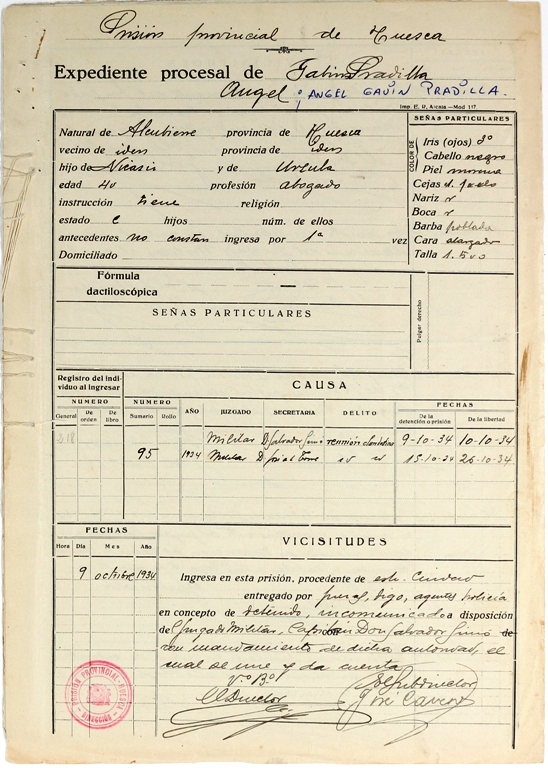 Prisión provincial de Huesca
Expediente procesal de Gabin Pradilla
Angel ; ANGEL GAVÍN PRADILLA.
Imp. E. R. Alcala - Mod 117.
Natural de Alcubierre provincia de Huesca
vecino de idem provincia de idem
hijo de Nicasio y de Ursula
edad 40 profesión abogado
instrucción tiene religión
estado c hijos núm. de ellos
antecedentes no constan ingresa por 1ª vez
Domiciliado
SEÑAS PARTICULARES
COLOR DE
Iris (ojos) 3º
Cabello negro
Piel morena
Cejas al pelo
Nariz r
Boca r
Barba poblada
Cara alargada
Talla 1.500
Fórmula
dactiloscópica —
SEÑAS PARTICULARES
Pulgar derecho
Registro del indi-
viduo al ingresar
NUMERO
General De orden De libro
CAUSA
NUMERO
Sumario Rollo
AÑO JUZGADO SECRETARIA DELITO
FECHAS
De la detención o prisión De la libertad
218 Militar D. Salvador reunión clandestina 9-10-34 10-10-34
95 1934 Militar D. José id id 15-10-34 26-10-34
FECHAS
Hora Dia Mes Año
9 octubre 1934
VICISITUDES
Ingresa en esta prisión, procedente de esta
entregado por fuerza, digo, agentes policía
en concepto de detenido, incomunicado a disposición
del Juzgado Militar, Capitán Don Salvador de
con mandamiento de dicha autoridad, el
cual se une y da cuenta
Vº Bº
El Director
El Subdirector
José Cavero
PRISIÓN PROVINCIAL HUESCA
DIRECCION